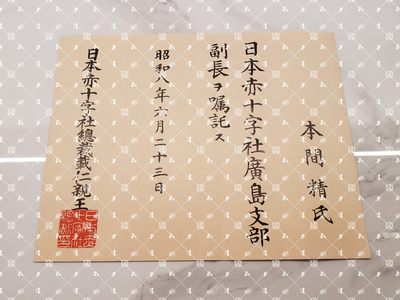 本間精氏
日本赤十字社廣島支部
副長ヲ囑託ス
昭和八年六月二十三日
日本赤十字社總裁載仁親王